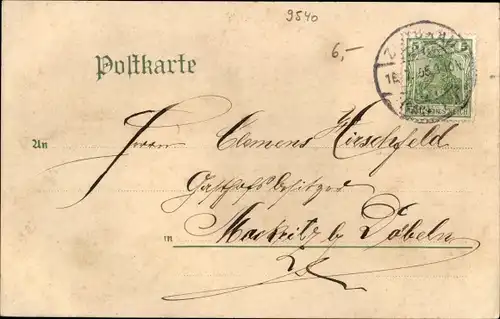 9540
6,-
Postkarte
5 5
An Herrn Clemens Hirschfeld
Gasthofsbesitzer
in Mochritz b/ Döbeln